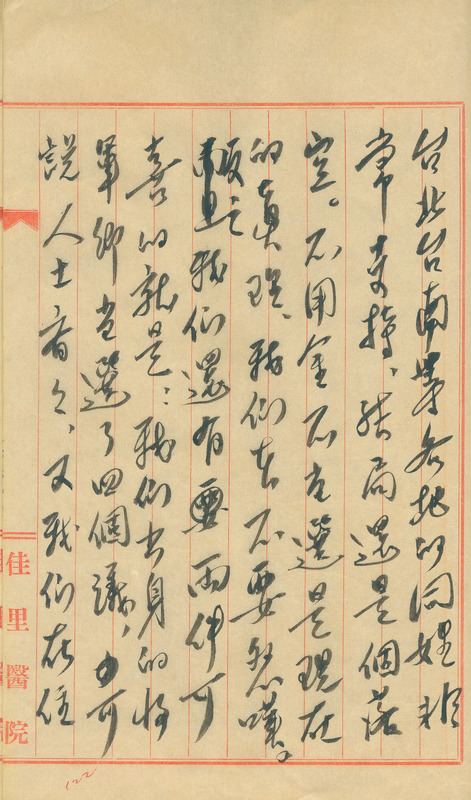 台北台南等各地的同姓非
常支持、結局還是個落
空。不用金不當選是現在
的真理、我們不要怨嘆。
反之我們還有兩件可
喜的就是：我們出身的將
軍鄉當選了四個議，也可
說人士々、又我們在住
佳里醫院
122